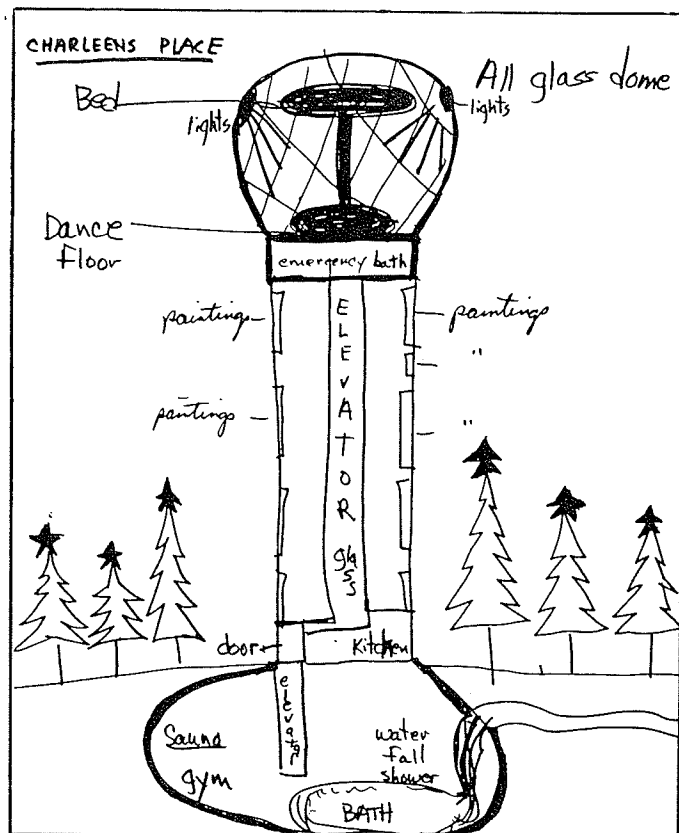 CHARLEENS PLACE
All glass dome
Bed
lights
lights
Dance
Floor
emergency bath
paintings
paintings
"
paintings
"
ELEVATOR
glass
door
Kitchen
elevator
Sauna
gym
water
fall
shower
BATH